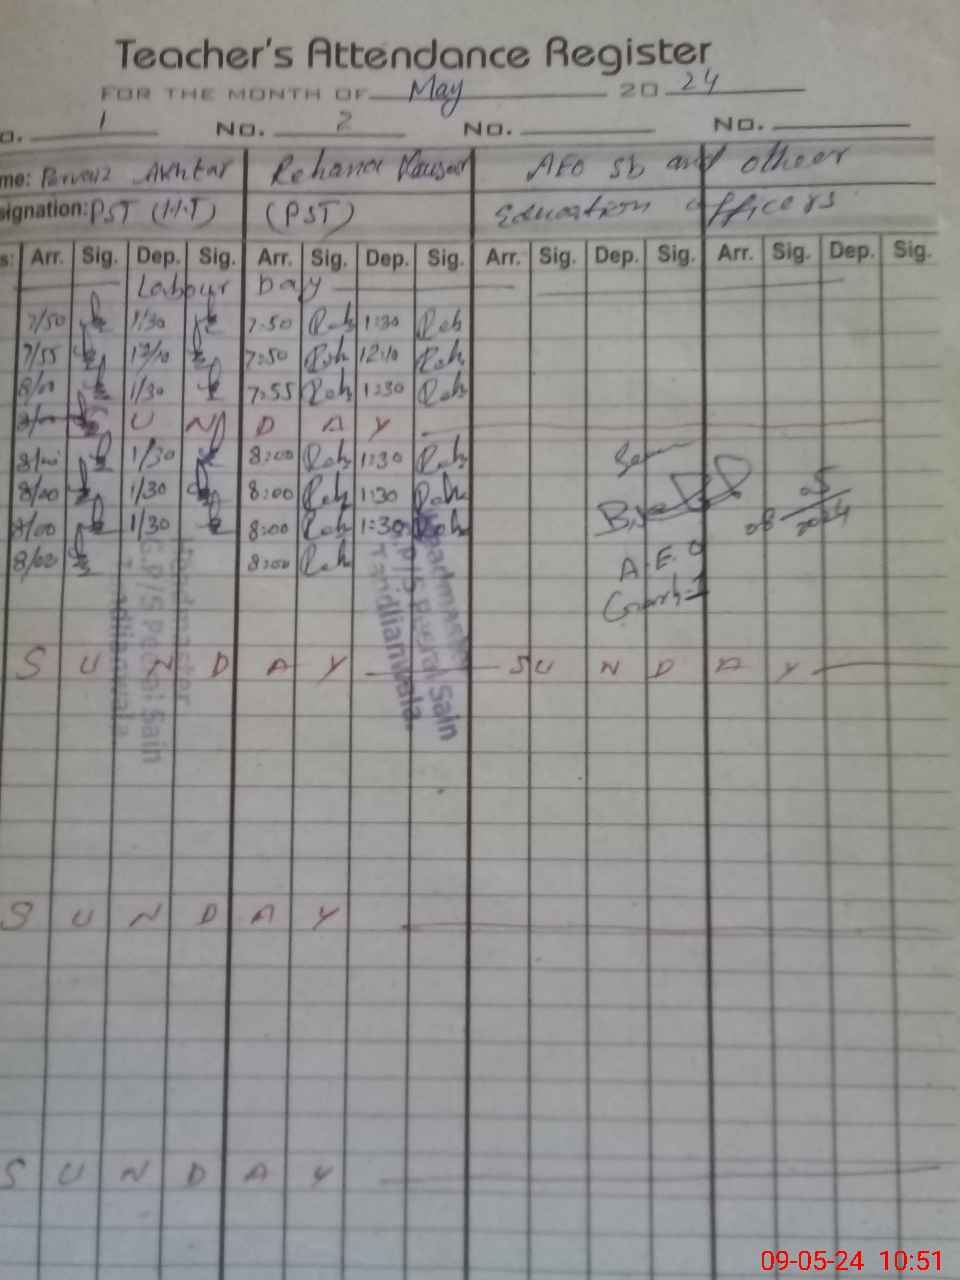 Teacher's Attendance Register
FOR THE MONTH OF May 20 24
o. 1 No. 2 No. No.
me: Parvaiz Akhtar Rehana Kausar AEO sb and otheer
signation: PST (H.T) (PST) Education officers
s: Arr. Sig. Dep. Sig. Arr. Sig. Dep. Sig. Arr. Sig. Dep. Sig. Arr. Sig. Dep. Sig.
Labour Day
7/50 1/30 7:50 Reh 1:30 Reh
7/55 12/10 7:50 Reh 12:10 Reh
8/00 1/30 7:55 Reh 1:30 Reh
S U N D A Y
8/00 1/30 8:00 Reh 1:30 Reh
8/00 1/30 8:00 Reh 1:30 Reh
8/00 1/30 8:00 Reh 1:30 Reh
8/00 8:00 Reh
Seen
08 05 2024
A.E.O
Headmaster
G.P/S Peeral Sain
Tandlianwala.
Headmaster
G.P/S Peeral Sain
Tandlianwala.
S U N D A Y S U N D A Y
S U N D A Y
S U N D A Y
09-05-24 10:51